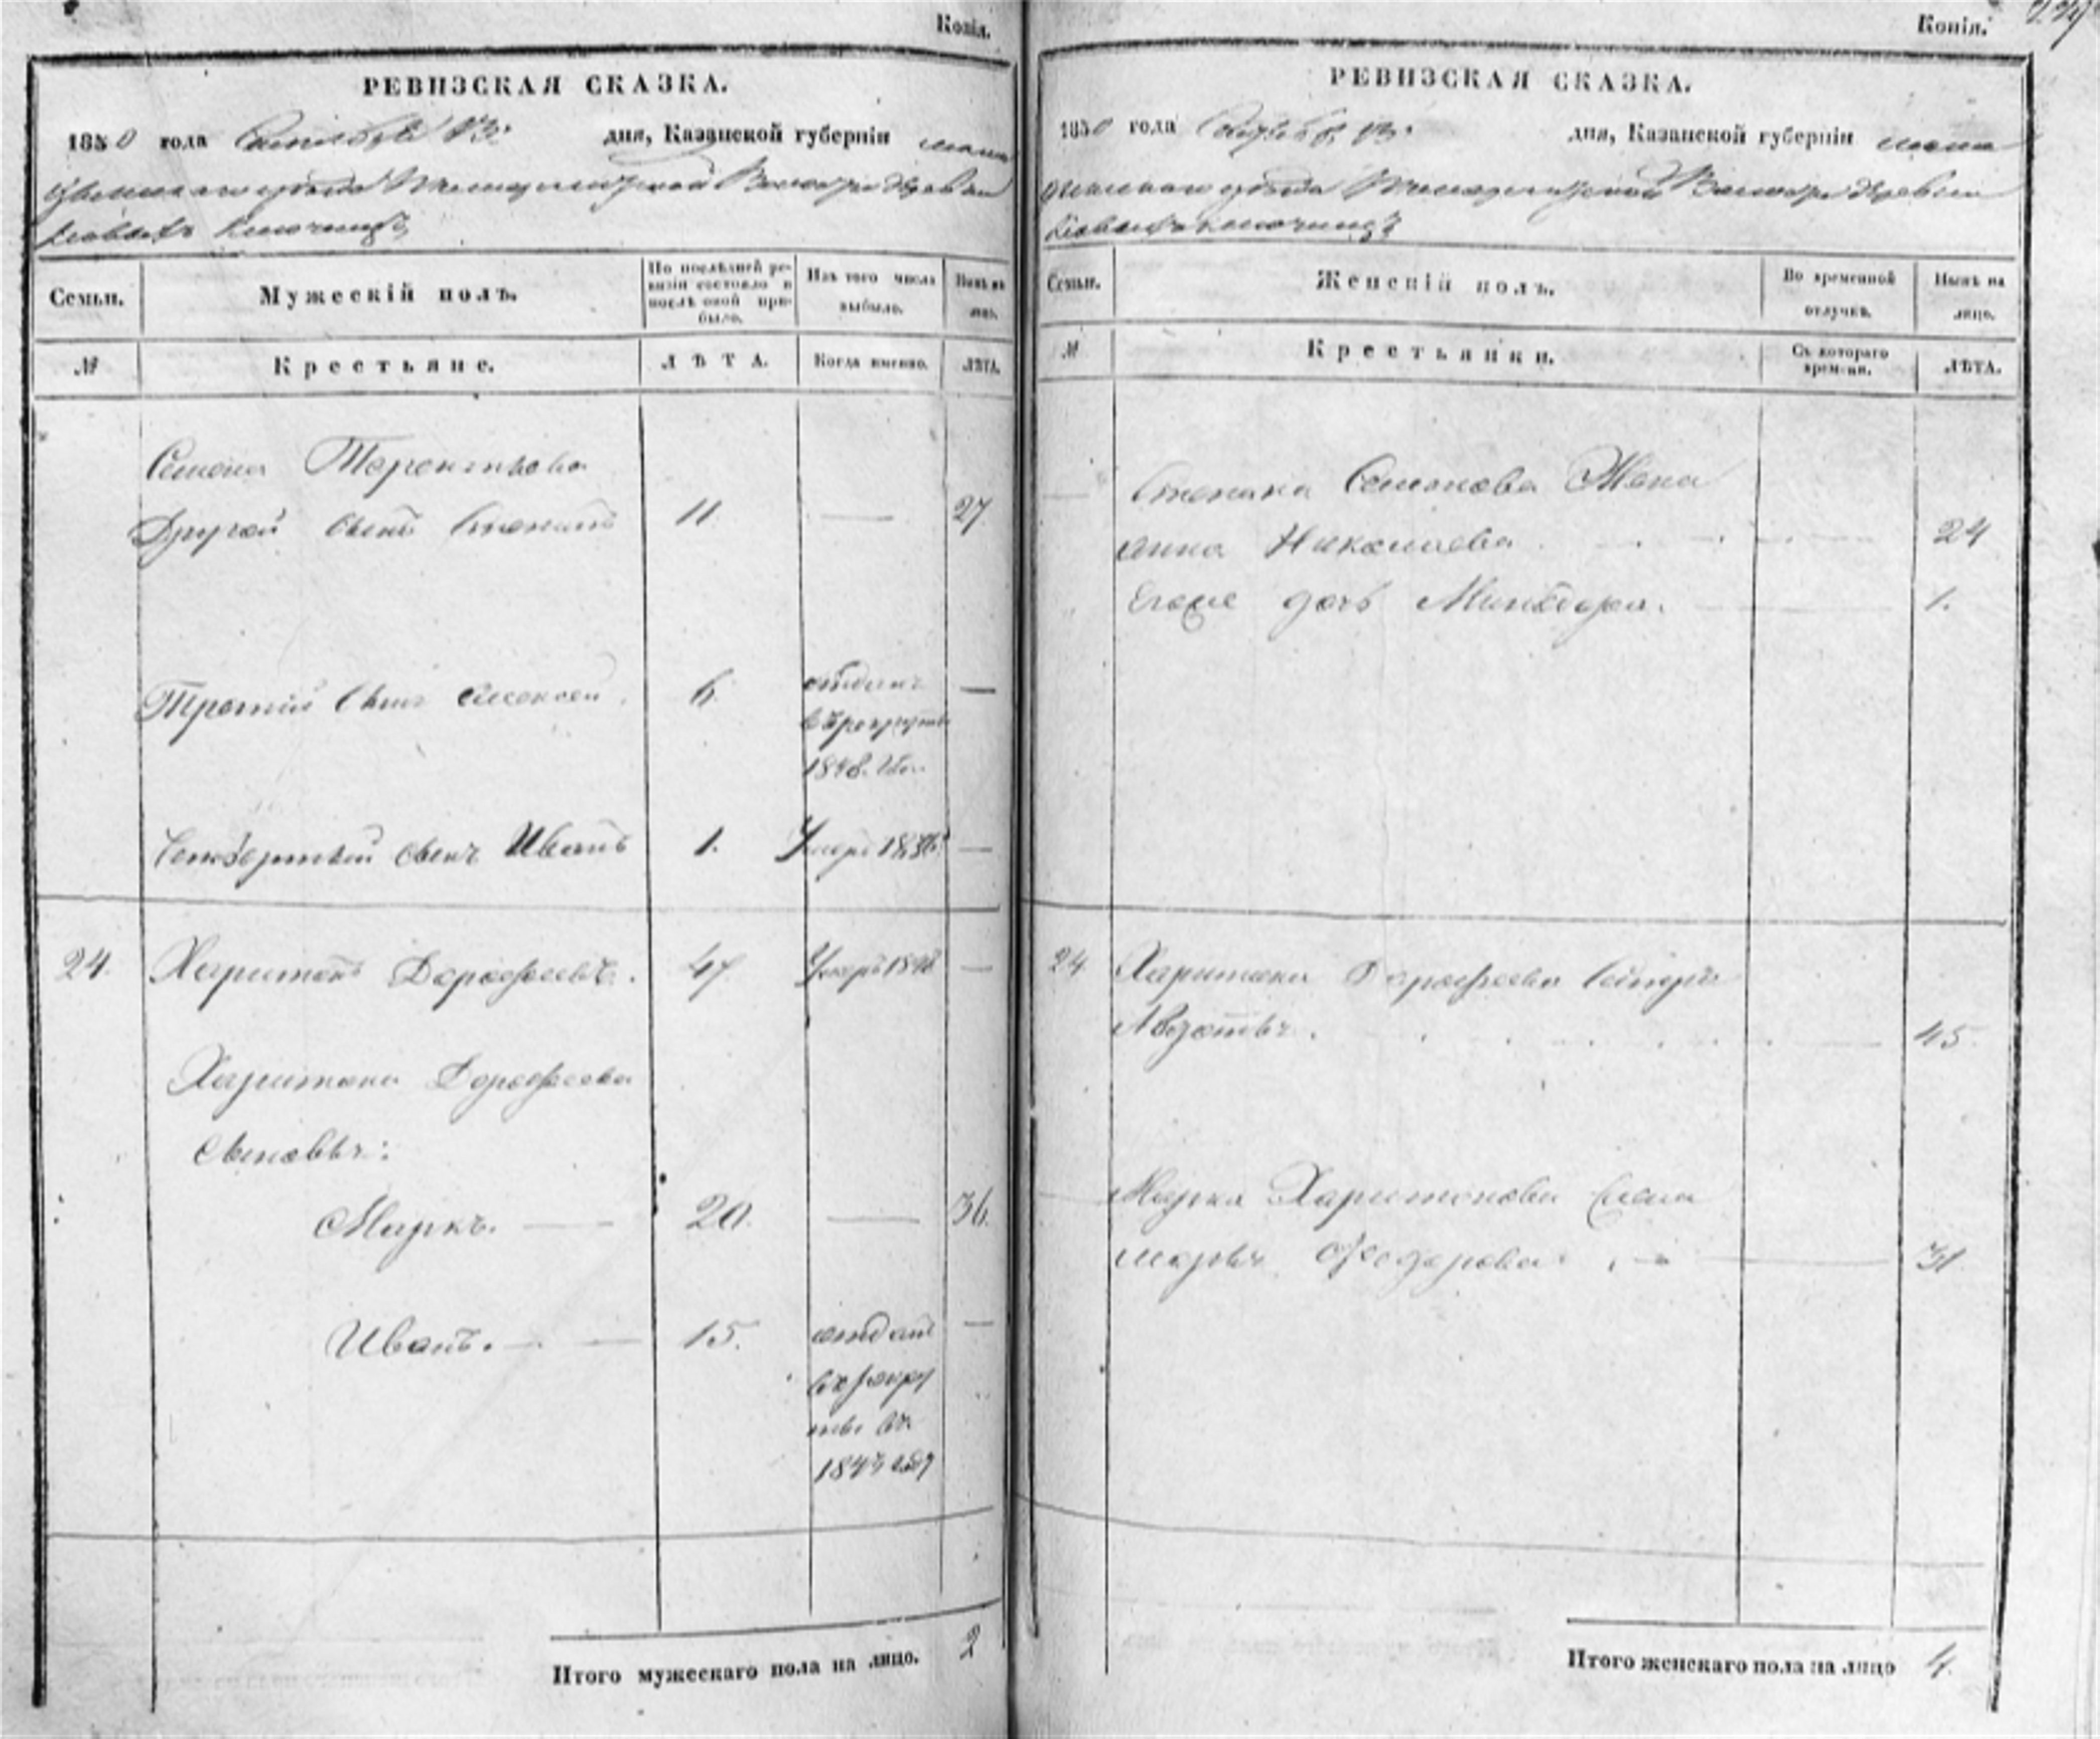 Копія.
РЕВИЗСКАЯ СКАЗКА.
1850 года Сентября 13. дня, Казанской губерніи мама
дышскаго уѣзда Волости деревни
Ключищъ
Семьи. Мужескій полъ. По послѣдней ре-
визіи состояло и
послѣ оной при-
было. Изъ того числа
выбыло. Нынѣ на
лицо.
№ Крестьяне. ЛѢТА. Когда именно. ЛѢТА.
Семена Терентьева
Другой сынъ Степанъ 11 — 27
Третій сынъ Алексей 6. отданъ —
въ рекруты
1848. год.
Четвертый сынъ Иванъ 1. умеръ —
24. Харитонъ Дорофѣевъ. 47 умеръ —
Харитона Дорофеева
сыновья:
Маркъ. — 20. — 36.
Иванъ. — 15. отданъ —
въ рекру
ты въ
году
Итого мужескаго пола на лицо. 2
Копія.
РЕВИЗСКАЯ СКАЗКА.
1850 года 13. дня, Казанской губерніи мама
дышскаго уѣзда Волости деревни
Ключищъ
Семьи. Женскій полъ. Во временной
отлучкѣ. Нынѣ на
лицо.
№ Крестьянки. Съ котораго
времени. ЛѢТА.
Степана Семенова Жена
Анна Николаева 24
Егоже дочь 1.
24 Харитона Дорофеева
45
Марка Харитонова
Марья Федорова 31
Итого женскаго пола на лицо 4.